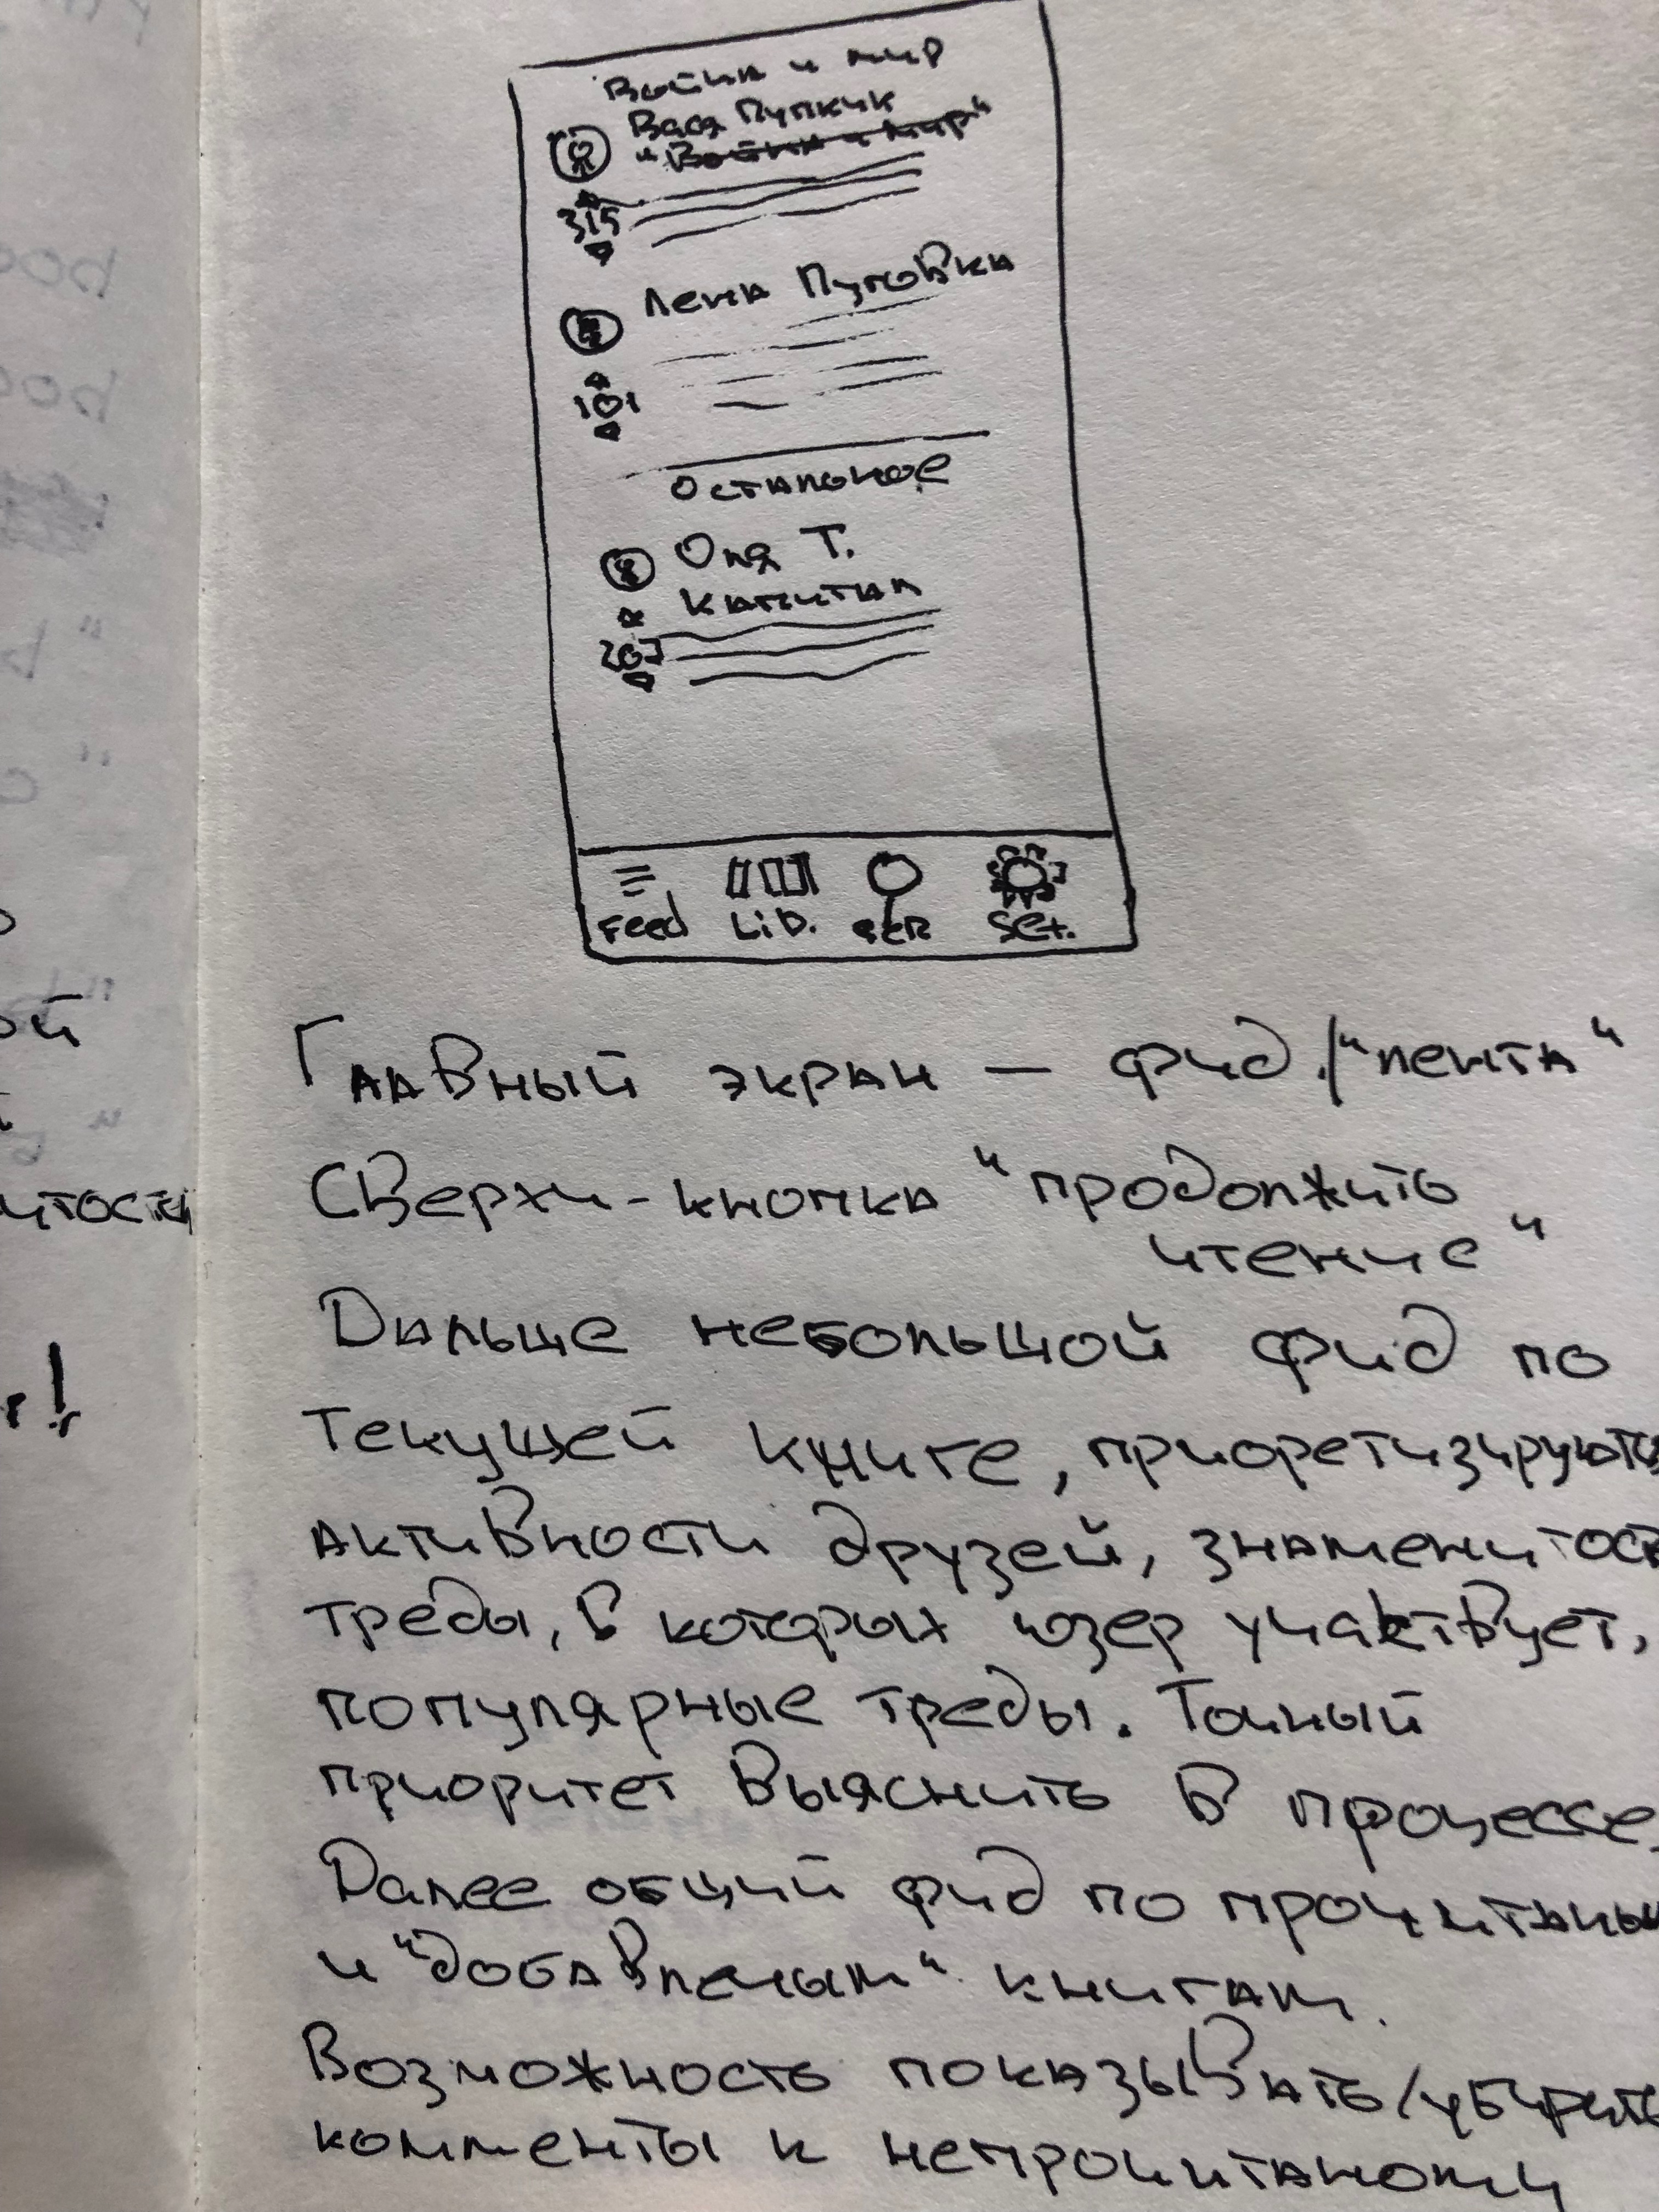 Война и мир
Вася Пупкин
"Война и мир"
315
Лена Пуговка
101
Остальное
Оля Т.
Капитал
207
Feed Lib. Set.
Главный экран — фид / "лента"
Сверху - кнопка "продолжить
чтение"
Дальше небольшой фид по
текущей книге, приоретизируются
активности друзей, знаменитост
треды, в которых юзер участвует,
популярные треды. Точный
приоритет выяснить в процессе.
Далее общий фид по прочитаны
и "добавленым" книгам.
Возможность показывать/убирать
комменты к непрочитаному
ой
итостей
!